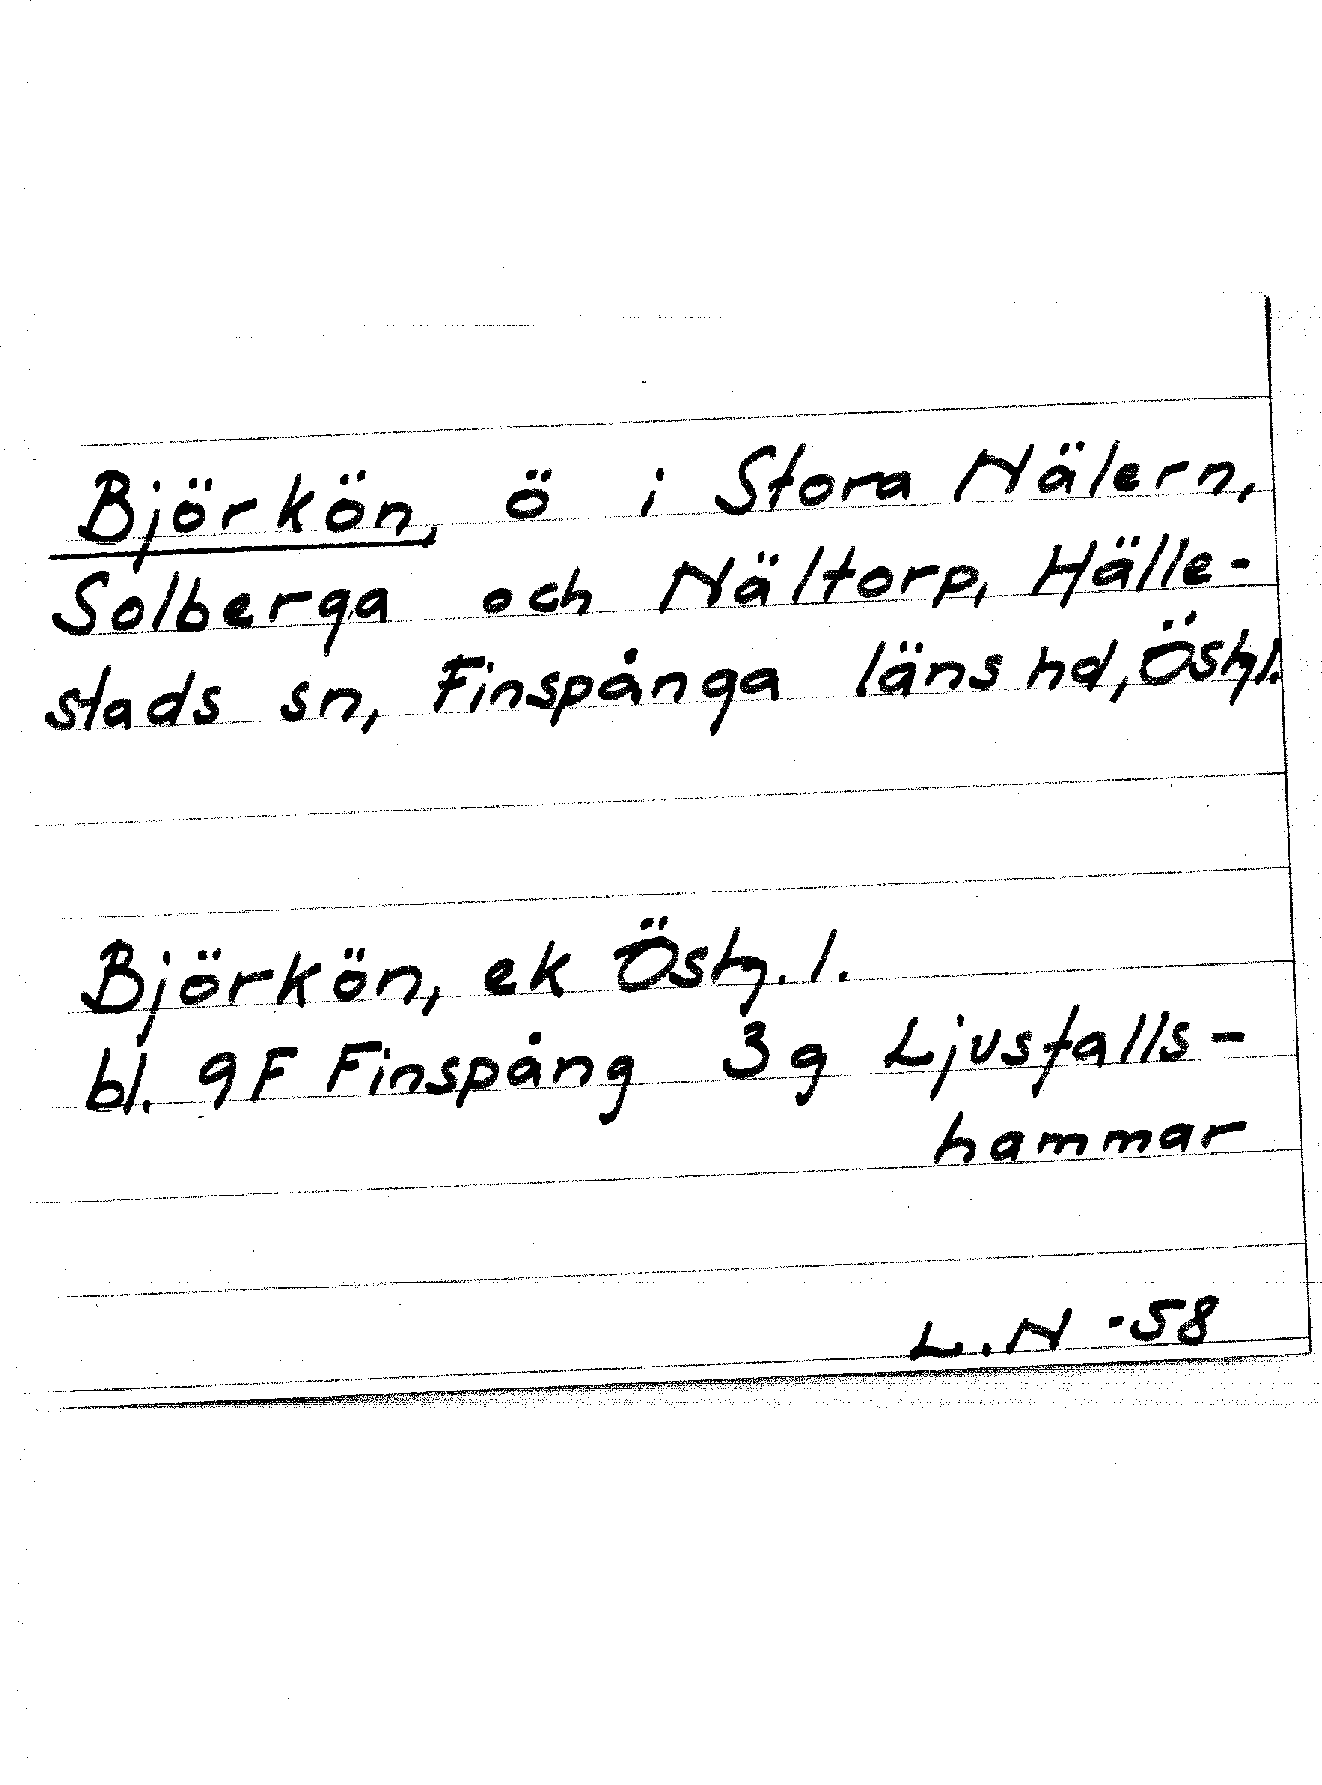 Björkön, ö i Stora Nälern,
Solberga och Nältorp, Hälle-
stads sn, Finspånga läns hd, Östg.l.
Björkön, ek Östg.l.
bl. 9F Finspång 3g Ljusfalls-
hammar
L.N -58